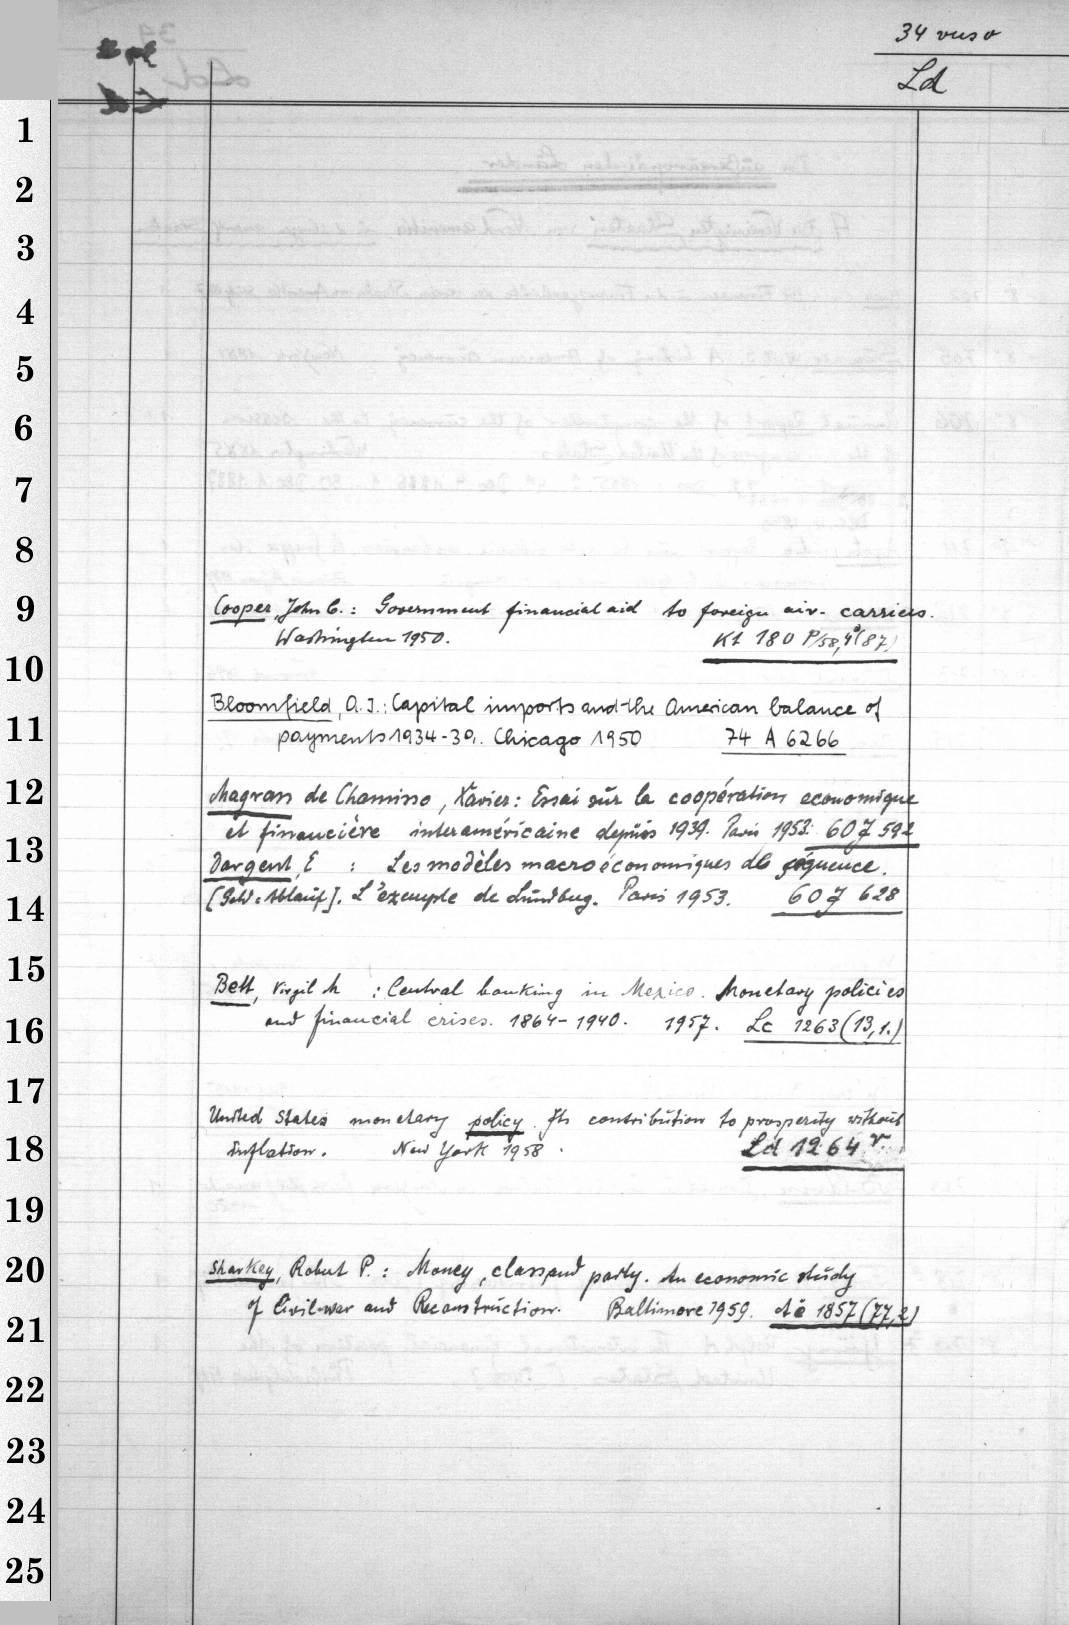 34 verso
Ld
1
2
3
4
5
6
7
8
9
Cooper, John C.: Government financial aid to foreign air-carriers.
Washington 1950. Kt 180 P/58,4°(87)
10
Bloomfield, A. I.: Capital imports and the American balance of
11
payments 1934-39. Chicago 1950 74 A 6266
12
Magran de Chamino, Xavier: Essai sur la coopération economique
et financière interaméricaine depuis 1939. Paris 1953. 607 592
13
Dargent, E : Les modèles macroéconomiques de séquence.
[Geld-Ablauf]. L'exemple de Lundberg. Paris 1953. 607 628
14
15
Bett, Virgil M : Central banking in Mexico. Monetary policies
and financial crises. 1864-1940. 1957. Lc 1263(13,1.)
16
17
United States monetary policy. Its contribution to prosperity without
inflation. New York 1958. Ld 1264 r.
18
19
20
Sharkey, Robert P.: Money, class, and party. An economic study
of Civil war and Reconstruction. Baltimore 1959. 1857(77,2)
21
22
23
24
25